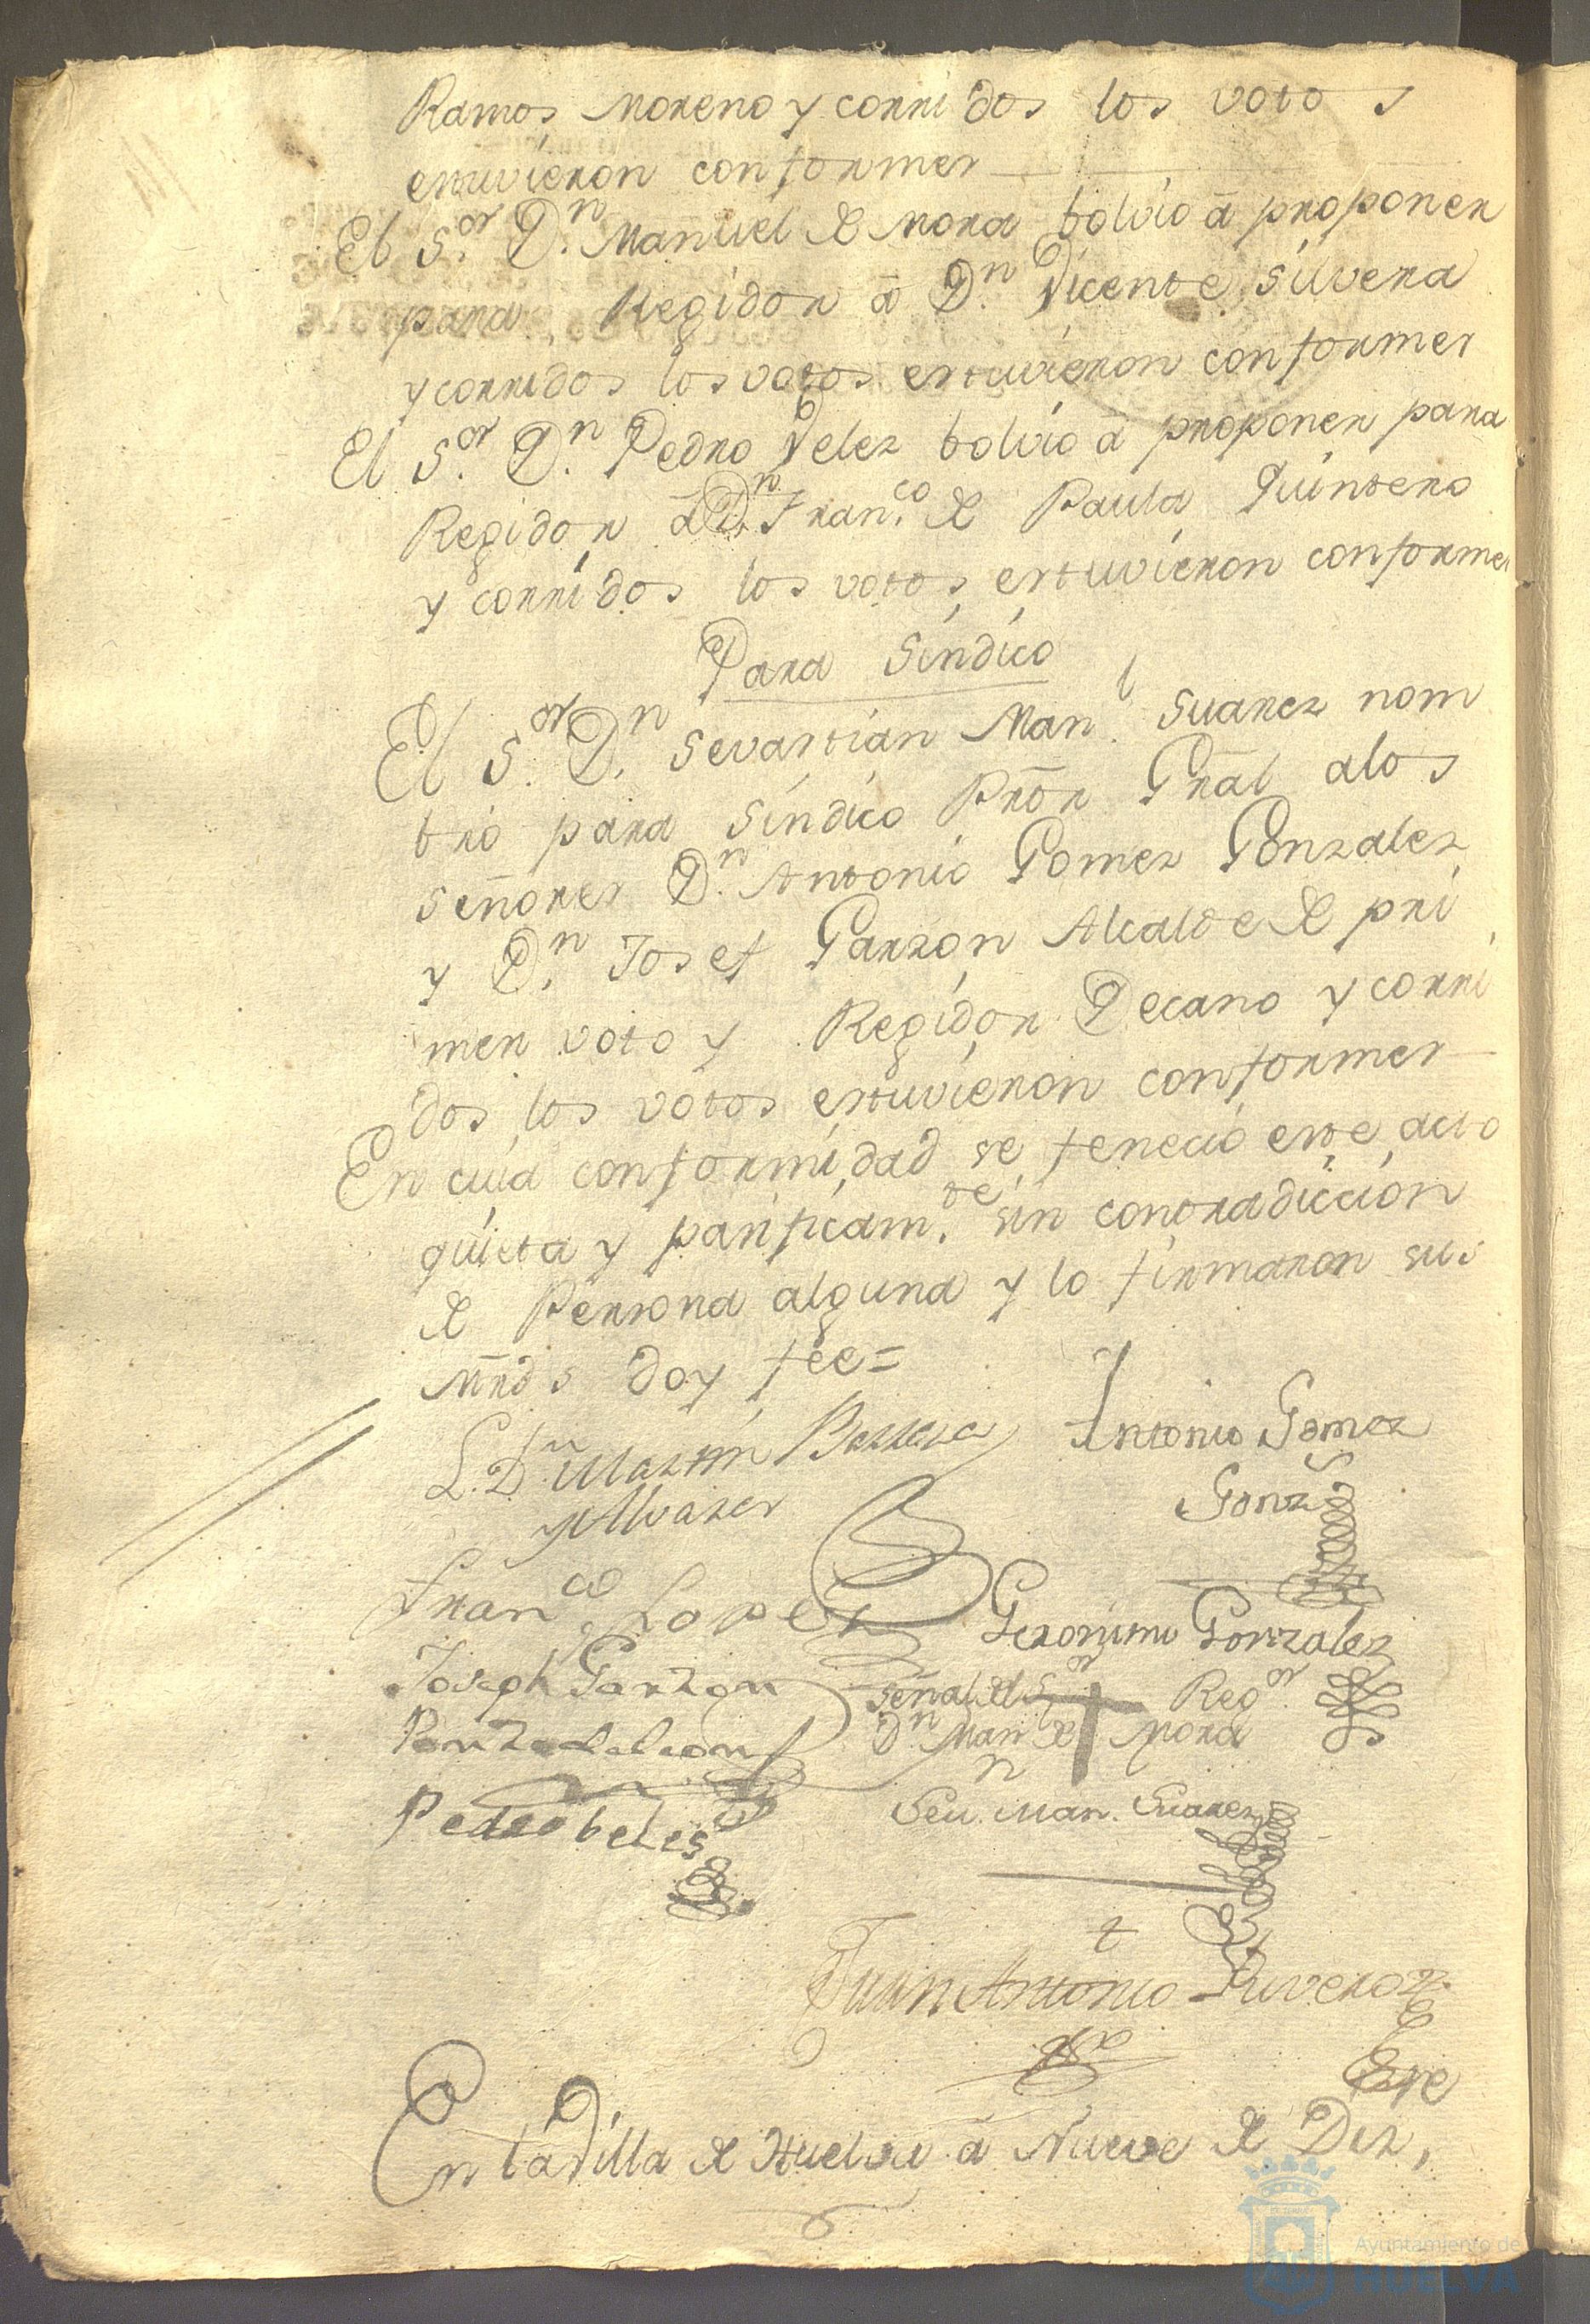 Ramos Moreno y corridos los votos
estuvieron conformes
El S.or D.n Manuel de Mora bolvio â proponer
para Regidor â D.n Vicente Silvera
y corridos los votos estuvieron conformes
El S.or D.n Pedro Velez bolvio â proponer para
Regidor â D.n Fran.co de Paula Quintero
y corridos los votos estuvieron conformes
Para Sindico
El S.or D.n Sevastian Man.l Suarez nom
bró para Sindico Prōr Grāl alos
señores D.n Antonio Gomez Gonzalez
y D.n Josef Garzon Alcalde de pri
mer voto y Regidor Decano y corri
dos los votos estuvieron conformes
En cuia conformidad se feneció este acto
quieta y pasificam.te sin contradiccion
de Persona alguna y lo firmaron sus
Mrds doy fee=
L. D.n Martin Barrera
y Alvarez
Antonio Gomez
Gonz
Fran.co Lopez
Geronimo Gonzalez
Joseph Garzon
Ponze de leon
Señal del S.or Reg.or
D.n Man.l de Mora
Pedro beles
Sev.n Man. Suarez
Juan Antonio Rivero
En la Villa de Huelva â Nueve de Diz,
Ayuntamiento de
HUELVA